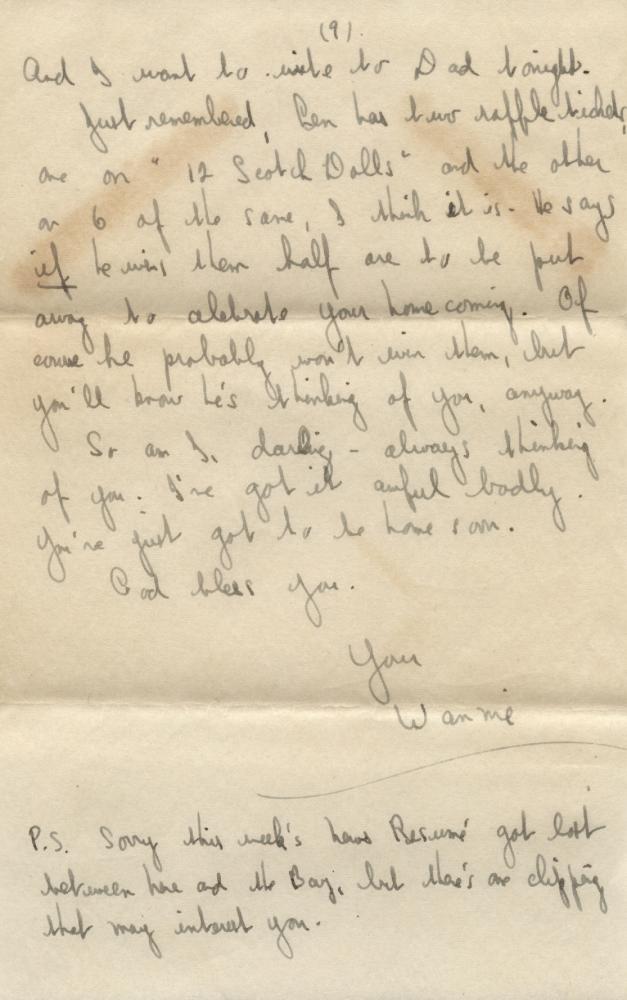 (9).
And I want to write to Dad tonight.
Just remembered, Ben has two raffle tickets,
one on "12 Scotch Dolls" and the other
on 6 of the same, I think it is. He says
if he wins them half are to be put
away to celebrate your homecoming. Of
course he probably won't win them, but
you'll know he's thinking of you, anyway.
So am I, darling - always thinking
of you. I've got it awful badly.
You're just got to be home soon.
God bless you.
Your
Wannie
P.S. Sorry this week's News Resumé got lost
between here and the Bay, but there's one clipping
that may interest you.